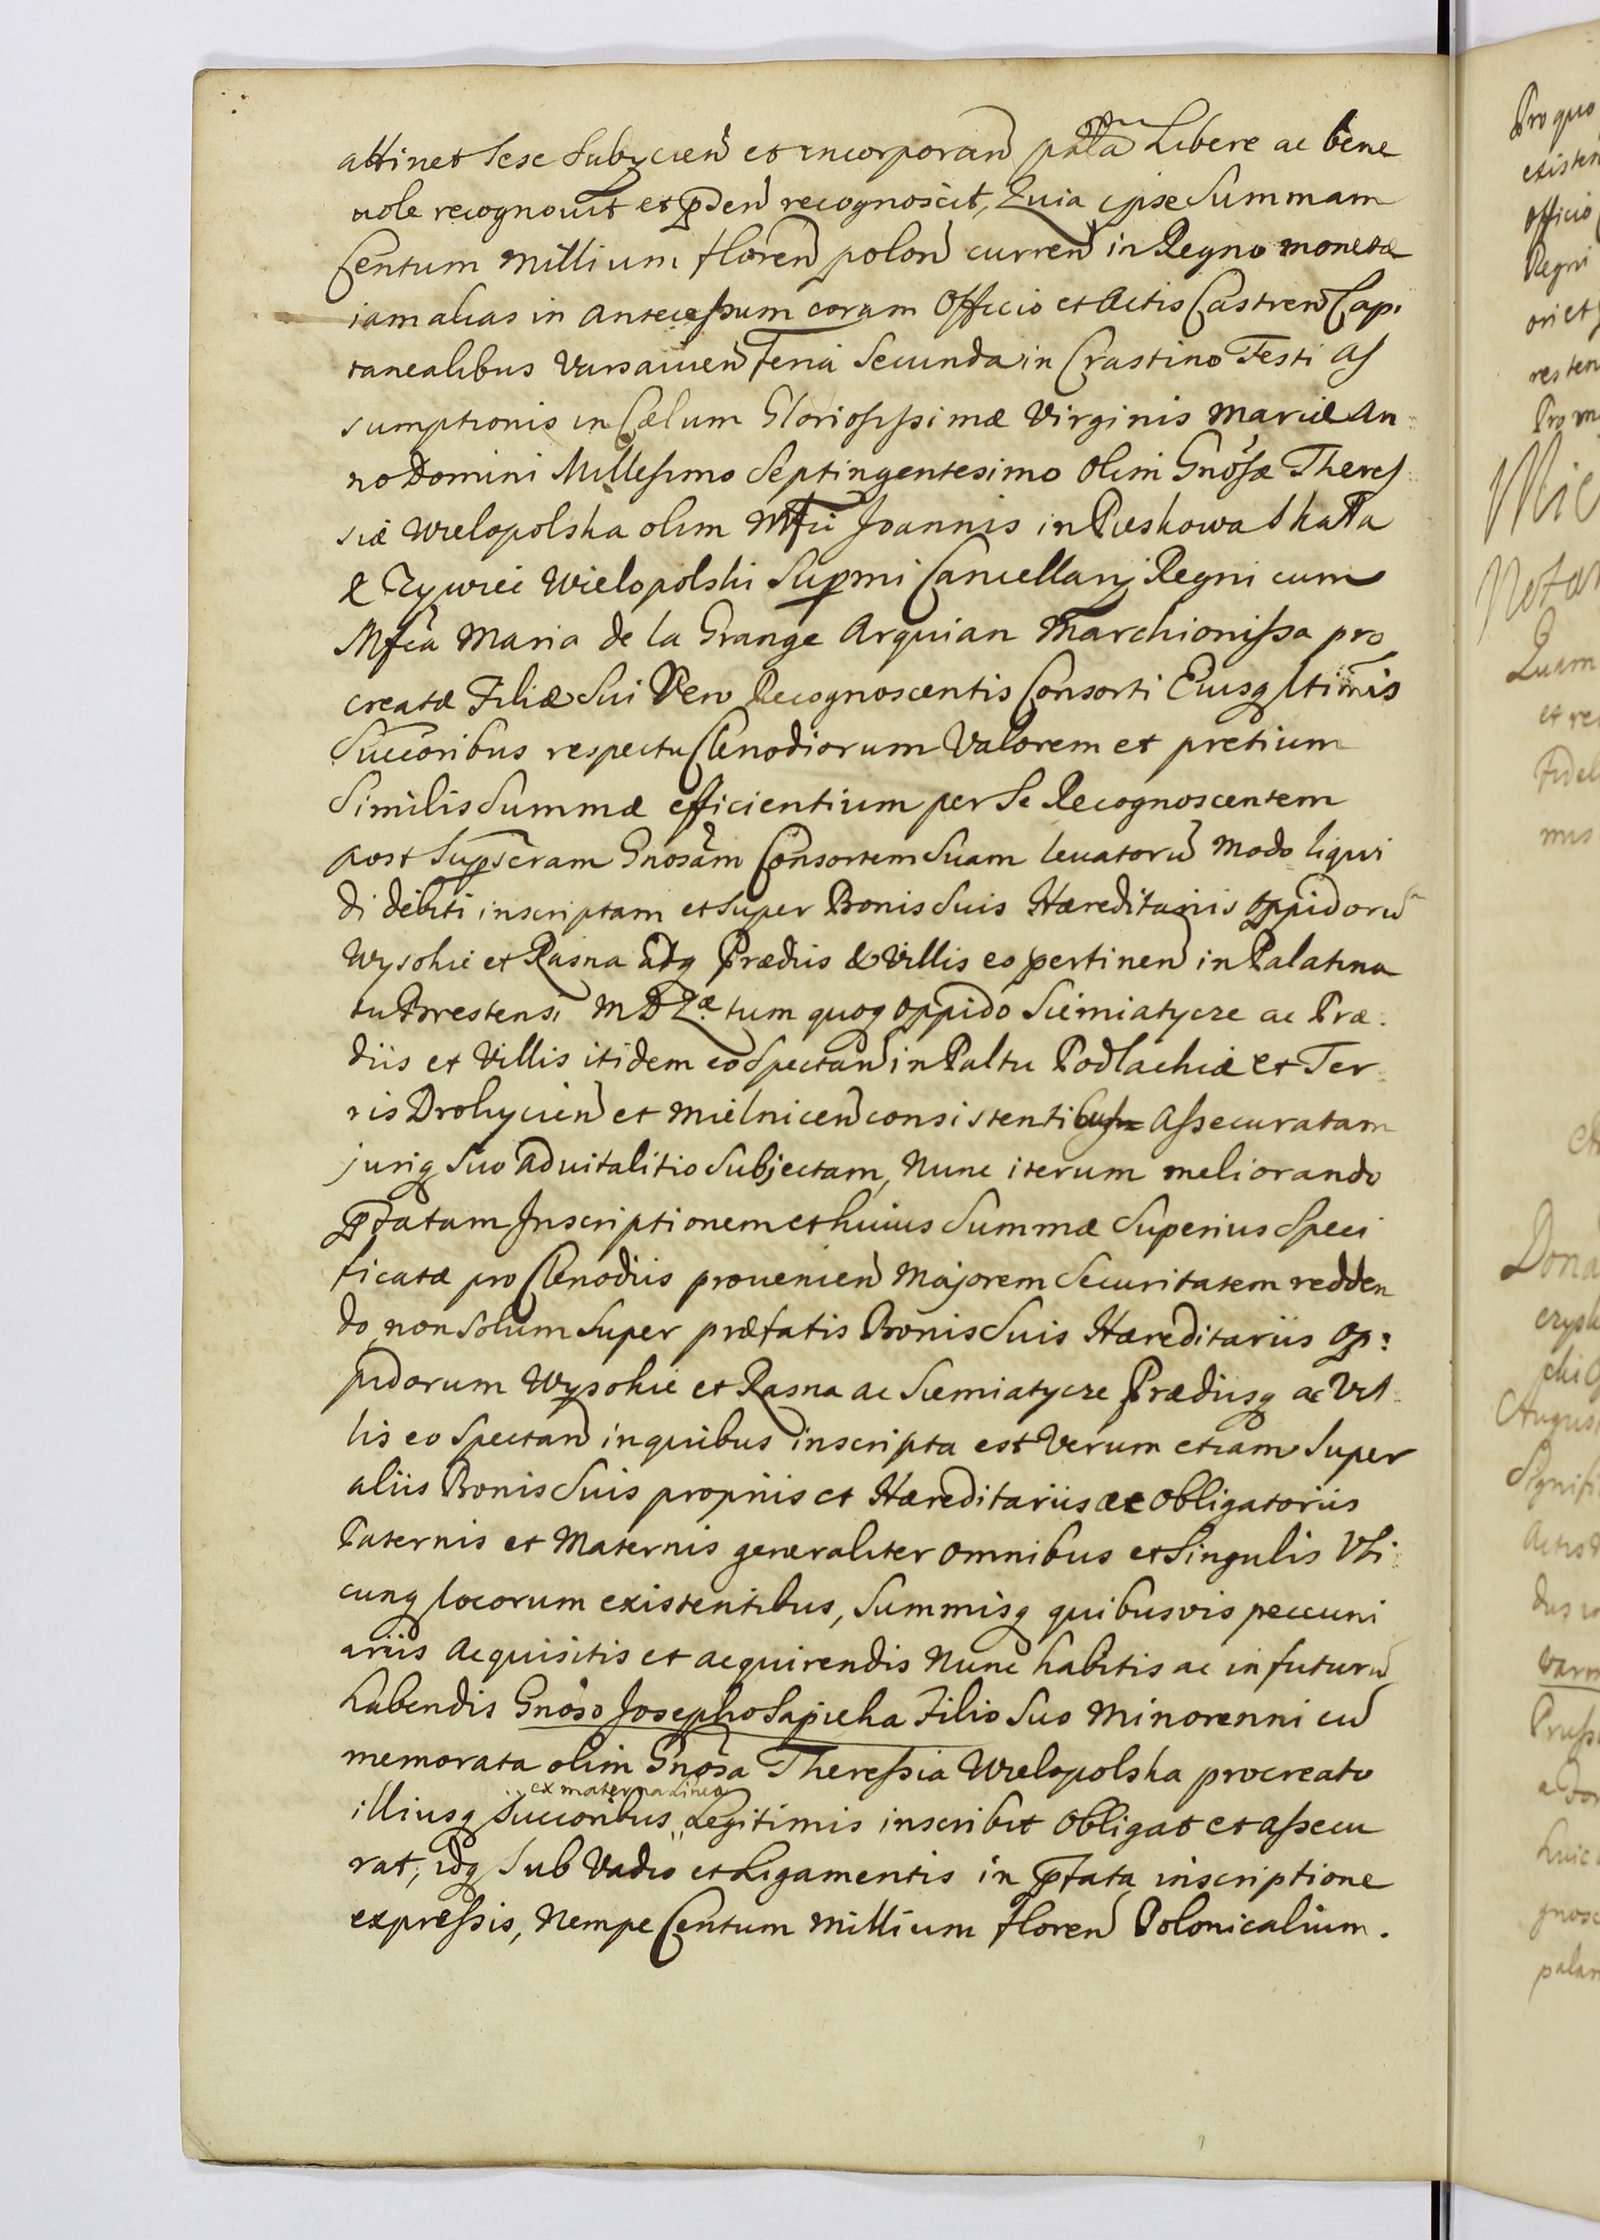 attinet Sese Subycien et incorporan palam Libere ac bene
uole recognouit et pden recognoscit, Quia ipse Summam
Centum Millium floren polon curren in Regno monetæ
iam alias in Antecessum coram Officio et Actis Castren Capi
tanealibus Varsauien feria Secunda in Crastino Festi As
sumptionis in Cælum Gloriosissimæ Virginis Mariæ An
no Domini Millesimo Septingentesimo olim Gnosæ Theres
siæ Wielopolska olim Mfci Joannis in Pieskowa Skała
& Zywiec Wielopolski Supmi Cancellarij Regni cum
Mfca Maria de la Grange Arquian Marchionissa pro
creatæ Filiæ Sui Vero Recognoscentis Consorti Eiusq ltimis
Succoribus respectu Clenodiorum Valorem et pretium
Similis Summæ efficientium per Se Recognoscentem
post Supscram Gnosam Consortem Suam leuatoru modo liqui
di debiti inscriptam et Super Bonis Suis Hæreditariis oppidoru
Wysokie et Rasna adq Prædiis & Villis eo pertinen in Palatina
tu Brestensi M D L æ tum quoq oppido Siemiatycze ac Præ
diis et Villis itidem eo Spectan in Paltu Podlachiæ et Ter
ris Drohycien et Mielnicen consistentibus Assecuratam
juriq Suo aduitalitio Subjectam, Nunc iterum meliorando
pfatam Inscriptionem et huius Summæ Superius Speci
ficatæ pro Clenodiis prouenien Majorem Securitatem redden
do, non Solum Super præfatis Bonis Suis Hæreditariis Op:
pidorum Wysokie et Rasna ac Siemiatycze Prædiisq ac Vil
lis eo Spectan in quibus inscripta est Verum etiam Super
aliis Bonis Suis propriis et Hæreditariis ac obligatoriis
Paternis et Maternis generaliter omnibus et Singulis Vbi
cunq locorum existentibus, Summisq quibusvis peccuni
ariis Acquisitis et acquirendis Nunc habitis ac in futuru
habendis Gnoso Josepho Sapieha Filio Suo Minorenni cu
memorata olim Gnosa Theressia Wielopolska procreato
ex materna Linea
illiusq Succoribus Legitimis inscribit Obligat et assecu
rat, idq Sub Vadio et Ligamentis in pfata inscriptione
expressis, Nempe Centum Millium floren Polonicalium.
Pro quo
existen
Officio
Regni
ori et
res ten
Mic
Notar
Quam
et re
Fidel
mus
Dona
Augus
Signifi
Actis
Pruss
huic
gnosc
palam